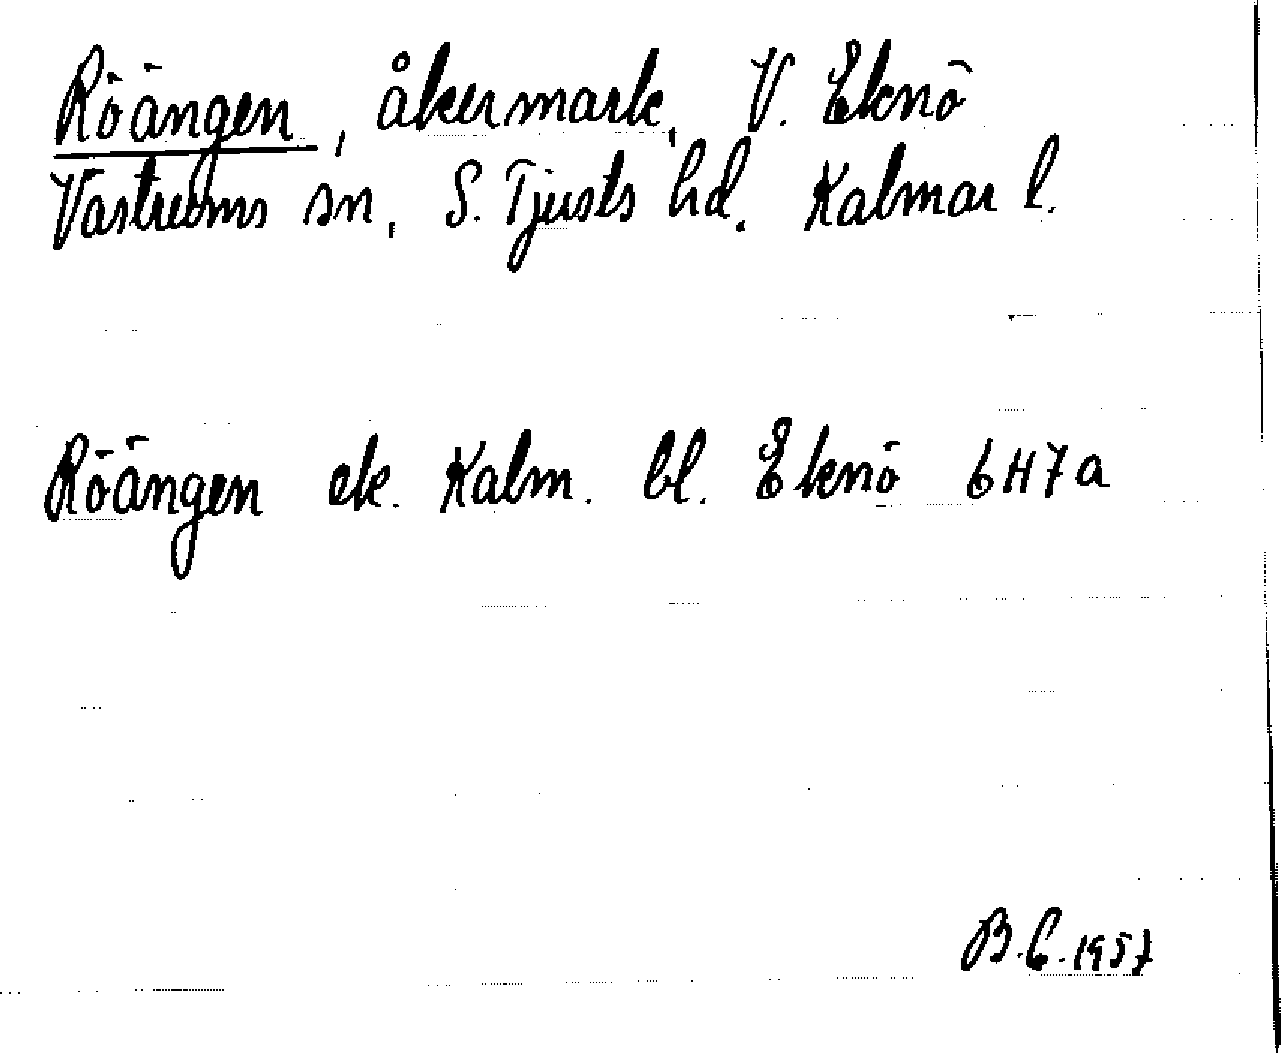 Röängen, åkermark, V. Eknö
Västrums sn, S. Tjusts hd. Kalmar l.
Röängen ek. Kalm. bl. Eknö 6H7a
B.C. 1957